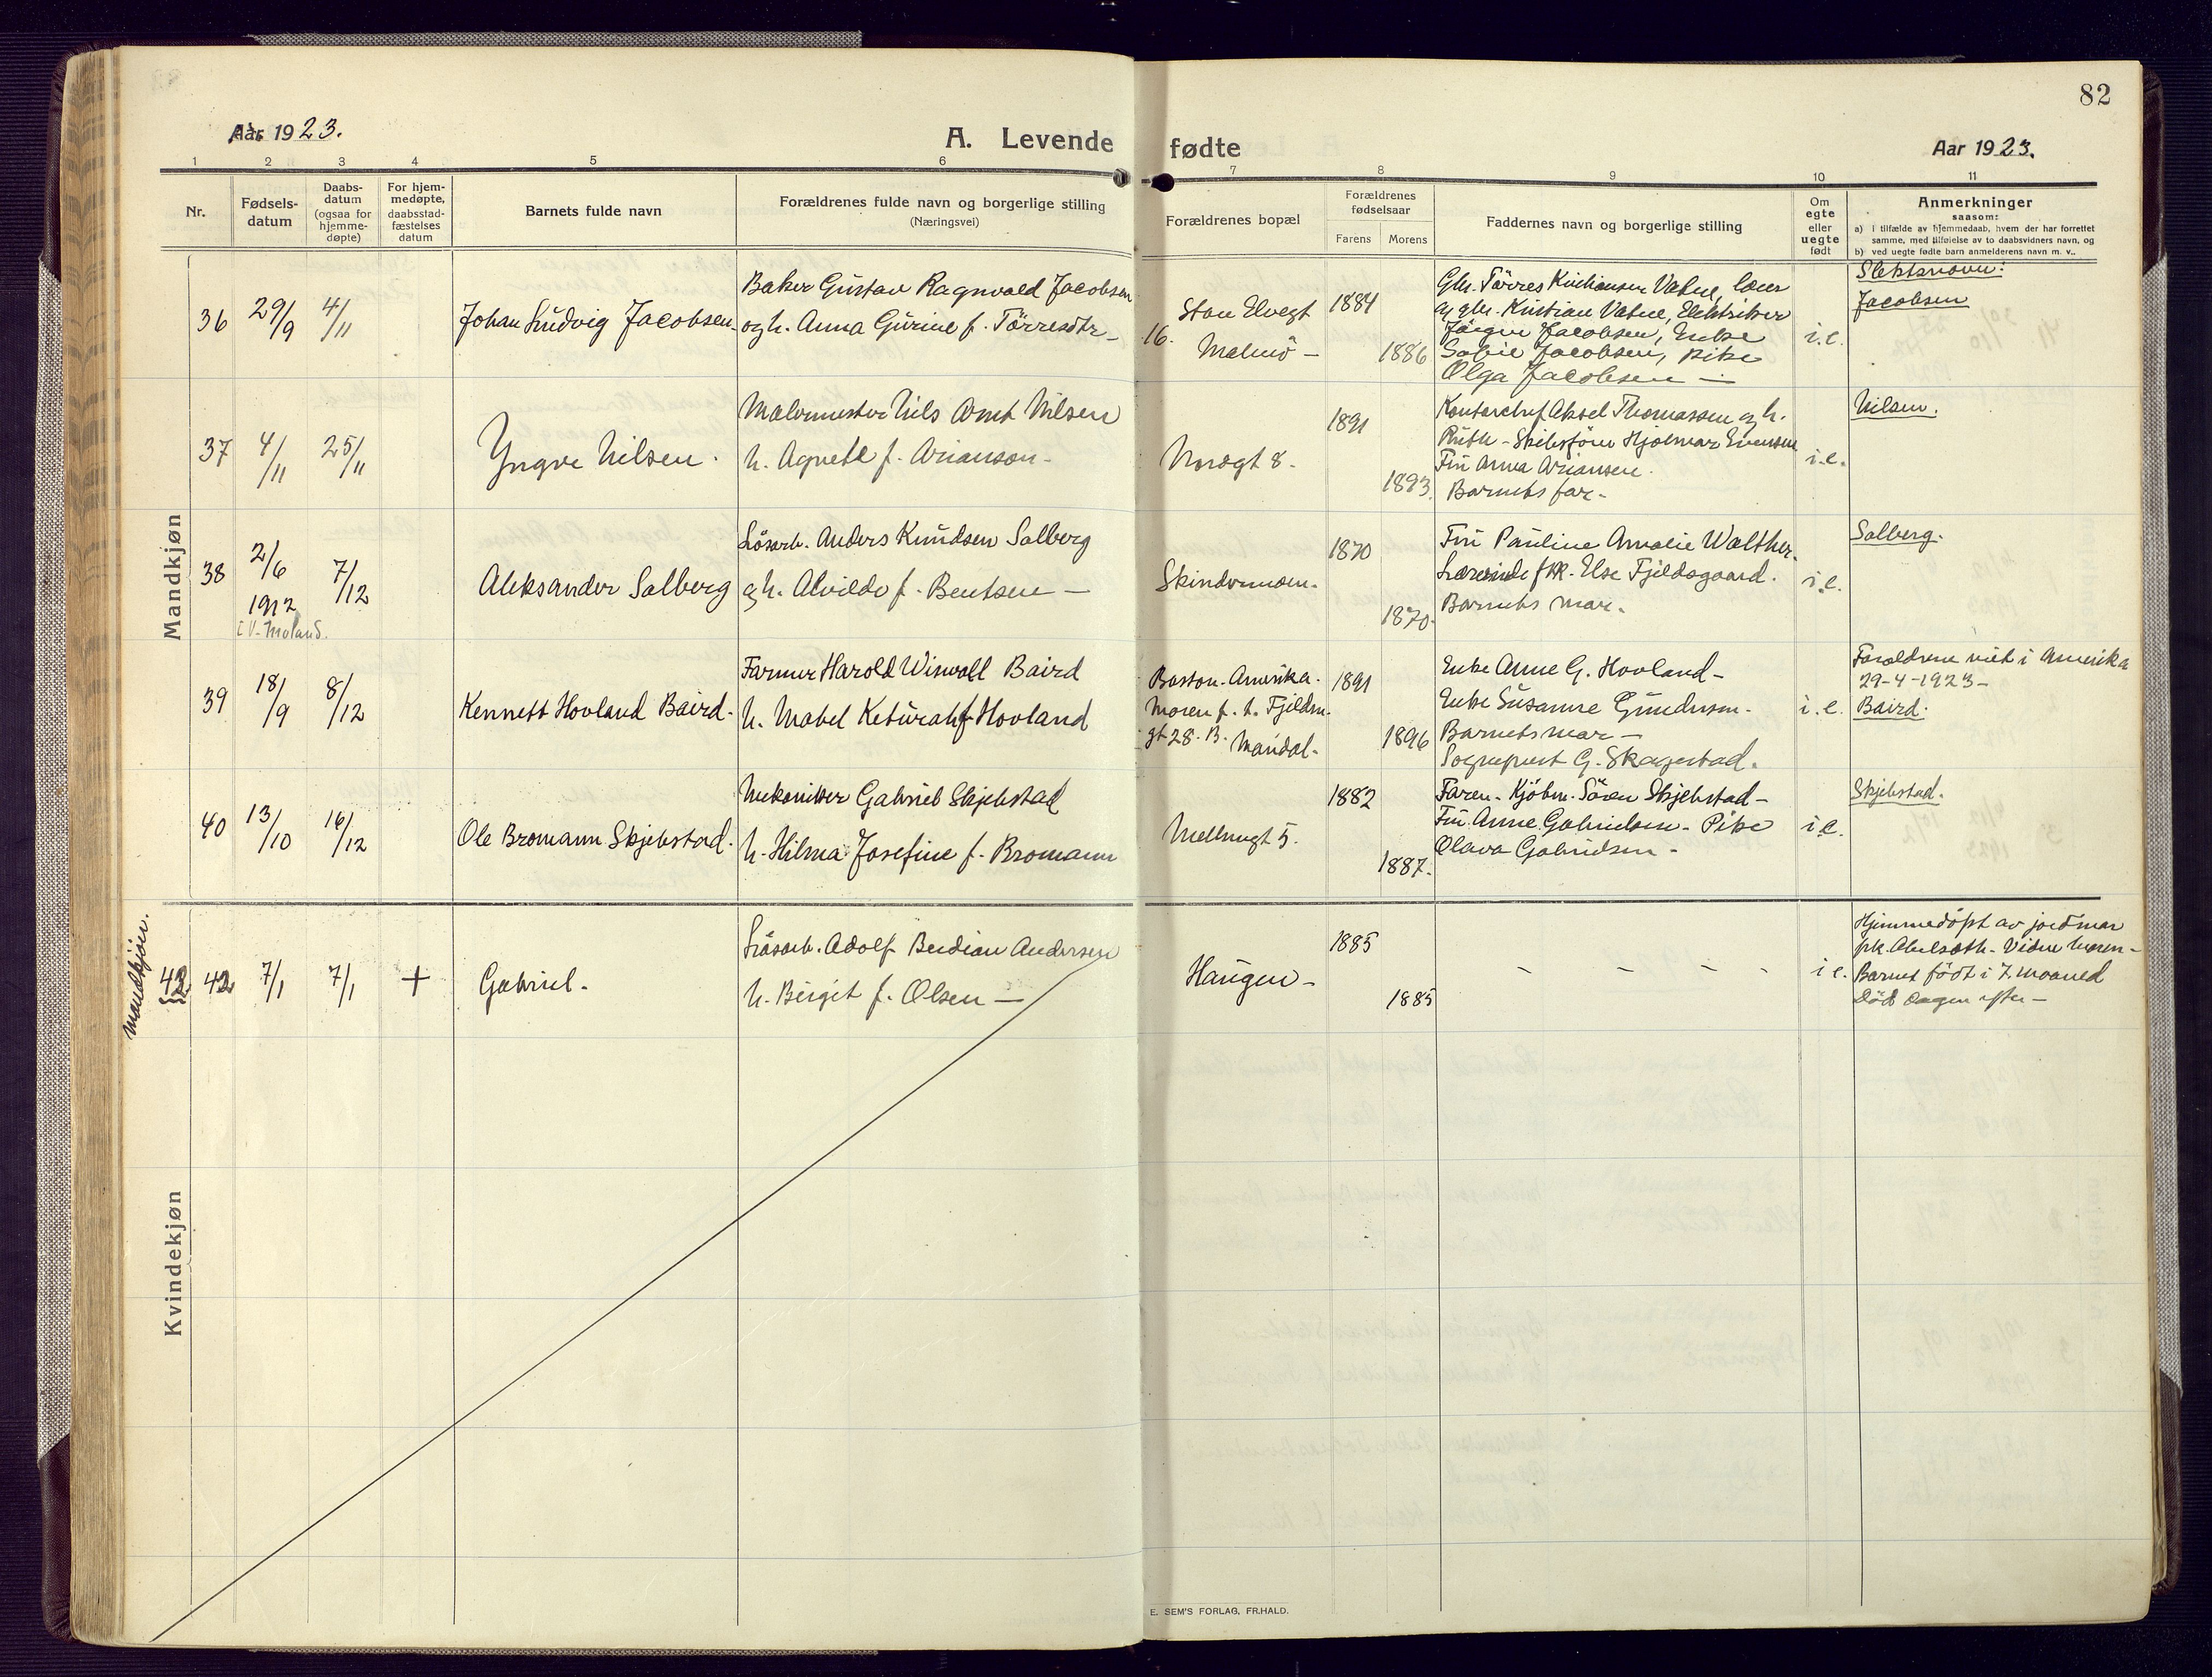 82
Aar 1923.
A. Levende fødte
Aar 1923.
1 2 3 4 5 6 7 8 9 10 11
Nr.
Fødsels-
datum
Daabs-
datum
(ogsaa for
hjemme-
døpte)
For hjem-
medøpte,
daabsstad-
fæstelses
datum
Barnets fulde navn
Forældrenes fulde navn og borgerlige stilling
(Næringsvei)
Forældrenes bopæl
Forældrenes
fødselsaar
Farens Morens
Faddernes navn og borgerlige stilling
Om
egte
eller
uegte
født
Anmerkninger
saasom:
a) i tilfælde av hjemmedaab, hvem der har forrettet
samme, med tilføielse av to daabsvidners navn, og
b) ved uegte fødte barn anmelderens navn m. v..
Mandkjøn
36
29/9
4/11
Johan Ludvig Jacobsen
Baker Gustav Ragnvald Jacobsen
og h. Anna Gurine f. Törresdtr
Store Elvegt
16.
Malmö
1884
1886
Kristian Vatne, Elektriker
Jörgen Jacobsen, Enke
Jacobsen, Pike
Olga Jacobsen
i.e.
Slektsnavn:
Jacobsen
37
4/11
25/11
Yngve Nilsen.
Malermester Nils Arnt Nilsen
h. Agnete f. Arianson
Nordgt 8.
1891
1893.
Kontorchef Aksel Thomassen og h.
Ruth - Skibsförer Hjalmar Evensen
Fru Anna Ariansen.
Barnets far.
i.e.
Nilsen.
38
2/6
1912
i V. Moland.
7/12
Aleksander Salberg
Lösarb. Anders Knudsen Salberg
og h. Alvilde f. Bentsen
Skindermoen.
1870
1870.
Fru Pauline Amalie Walther.
Lærerinde frk. Else Fjeldsgaard.
Barnets mor.
i.e.
Salberg.
39
18/9
8/12
Kennett Hovland Baird.
Farmer Harold Winvall Baird
h. Mabel Keturah f. Hovland
Boston. Amerika.
Moren f. t. Fjeldm.
gt 28. B. Mandal.
1891
1896
Enke Anne G. Hovland
Enke Susanne Gundersen.
Barnets mor
Sogneprest G. Skagestad.
i.e.
Forældrene viet i Amerika
29-4-1923
Baird.
40
13/10
16/12
Ole Bromann Skjebstad.
Mekaniker Gabriel Skjebstad
h. Hilma Josefine f. Bromann
Mellemgt 5.
1882
1887.
Faren. Kjöbm. Sören Skjebstad
Fru Anne Gabrielsen. Pike
Olava Gabrielsen.
i.e.
Skjebstad.
Mandkjön.
42
42
7/1
7/1
+
Gabriel.
Lösarb. Adolf Berdian Andersen
h. Bergit f. Olsen
Haugen
1885
1885
i e.
Hjemmedöpt av jordmor
frk. Abelseth. Vidne moren
Barnet född i 7. maaned
Död dagen efter
Kvindekjøn
E. SEM'S FORLAG, FR.HALD.